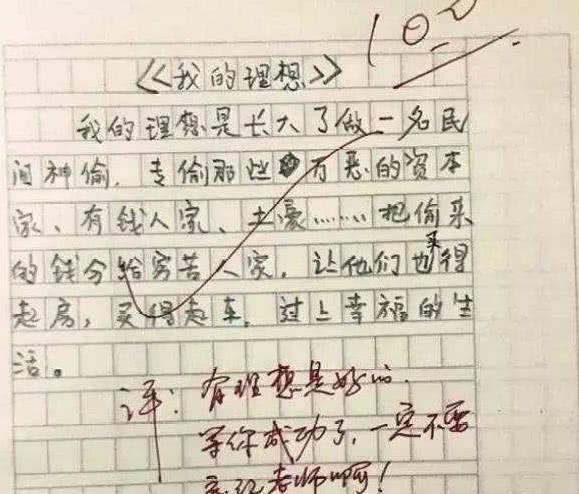 100
《我的理想》
我的理想是长大了做一名民
间神偷，专偷那些万恶的资本
家、有钱人家、土豪……把偷来
的钱分给穷苦人家，让他们也买得
起房，买得起车，过上幸福的生
活。
评：有理想是好的，
等你成功了，一定不要
忘记老师啊！